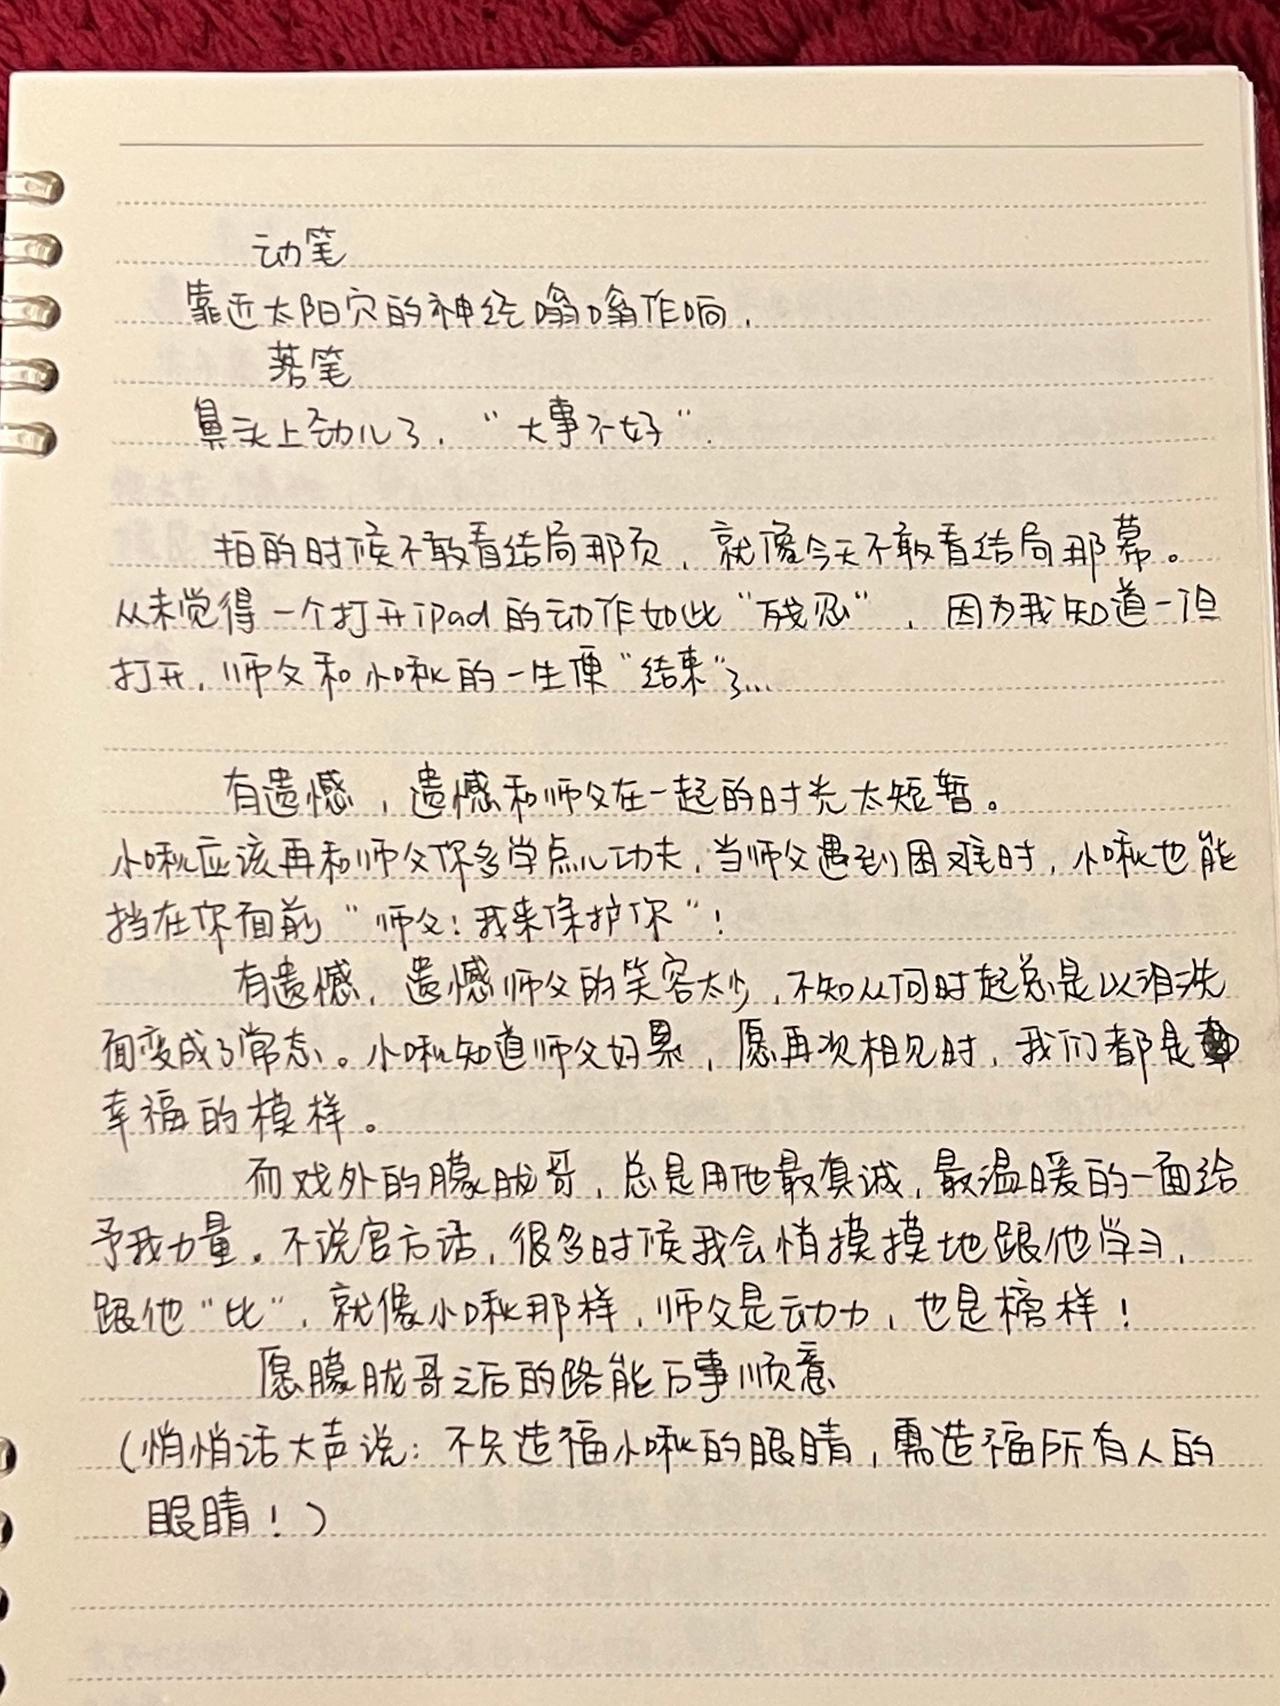 动笔
靠近太阳穴的神经嗡嗡作响，
落笔
鼻头上劲儿了，“大事不好”.
拍的时候不敢看结局那页，就像今天不敢看结局那幕。
从未觉得一个打开ipad的动作如此“残忍”，因为我知道一但
打开，师父和小啾的一生便“结束”了...
有遗憾，遗憾和师父在一起的时光太短暂。
小啾应该再和师父你多学点儿功夫，当师父遇到困难时，小啾也能
挡在你面前“师父：我来保护你”！
有遗憾，遗憾师父的笑容太少，不知从何时起总是以泪洗
面变成了常态。小啾知道师父好累，愿再次相见时，我们都是
幸福的模样。
而戏外的朦胧哥，总是用他最真诚，最温暖的一面给
予我力量。不说官方话，很多时候我会悄摸摸地跟他学习，
跟他“比”，就像小啾那样，师父是动力，也是榜样！
愿朦胧哥之后的路能万事顺意
（悄悄话大声说：不只造福小啾的眼睛，需造福所有人的
眼睛！）